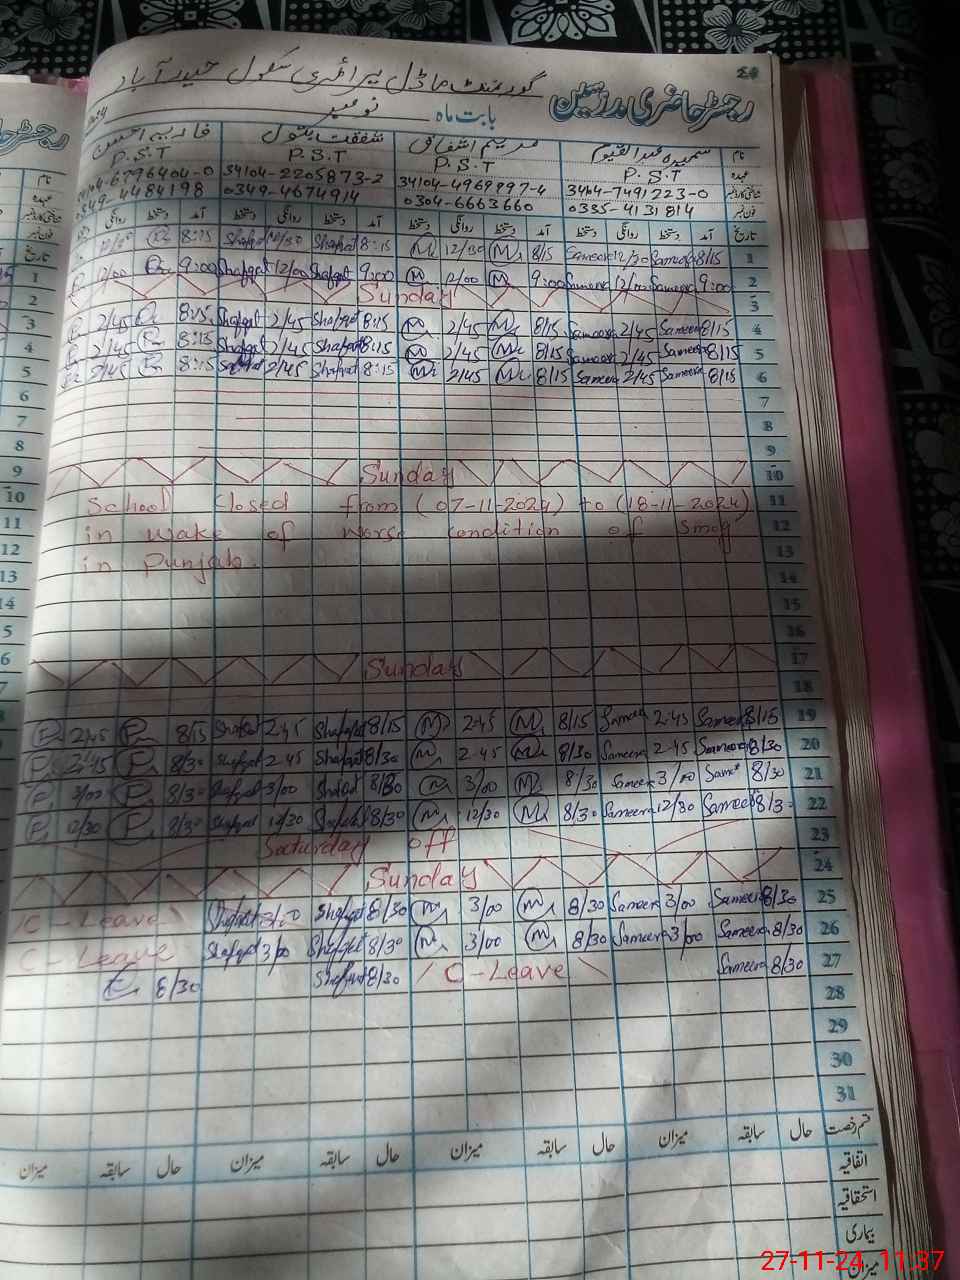 گورنمنٹ ماڈل پرائمری سکول حیدرآباد
رجسٹر حاضری مدرسین
بابت ماہ نومبر
نام سمیرہ عبدالقیوم مریم اشفاق شفقت بتول
عہدہ P.S.T P.S.T P.S.T P.S.T
34104-4969997-4 34104-2205873-2
فون نمبر 0335-4131814 0304-6663660 0349-4674914 0349-4484198
تاریخ آمد دستخط روانگی دستخط آمد دستخط روانگی دستخط آمد دستخط روانگی دستخط آمد دستخط روانگی
1 8/15 Sameera 12/30 Sameera 8/15 M 12/30 M 8:15 Shafqat 12/30 Shafqat 8:15
2 9:00 Sameera 12/00 Sameera 9:00 M 12/00 M 9:00 Shafqat 12/00 Shafqat 9:00 12/00
3 Sunday
4 8/15 Sameera 2/45 Sameera 8/15 M 2/45 M 8:15 Shafqat 2/45 Shafqat 8:15 2/45
5 8/15 Sameera 2/45 Sameera 8/15 M 2/45 M 8:15 Shafqat 2/45 Shafqat 8:15 2/45
6 8/15 Sameera 2/45 Sameera 8/15 M 2/45 M 8:15 Shafqat 2/45 Shafqat 8:15 2/45
7
8
9
10 Sunday
11 School closed from (07-11-2024) to (18-11-2024)
12 in wake of worse condition of smog
13 in Punjab.
14
15
16
17 Sunday
18
19 8/15 Sameera 2:45 Sameera 8/15 M 2:45 M 8/15 Shafqat 2:45 Shafqat 8/15 2:45
20 8/30 Sameera 2-45 Sameera 8/30 M 2-45 M 8/30 Shafqat 2-45 Shafqat 8/30 2-45
21 8/30 Sameera 3/00 Sameera 8/30 M 3/00 M 8/30 Shafqat 3/00 Shafqat 8/30 3/00
22 8/30 Sameera 12/30 Sameera 8/30 M 12/30 M 8/30 Shafqat 12/30 Shafqat 8/30 12/30
23 Saturday off
24 Sunday
25 8/30 Sameera 3/00 Sameera 8/30 M 3/00 M 8/30 Shafqat 3/00 Shafqat C-Leave
26 8/30 Sameera 3/00 Sameera 8/30 M 3/00 M 8/30 Shafqat 3/00 Shafqat C-Leave
27 8/30 Sameera C-Leave 8/30 Shafqat 8/30
28
29
30
31
قسم رخصت حال سابقہ میزان حال سابقہ میزان حال سابقہ میزان حال سابقہ میزان
اتفاقیہ
استحقاقیہ
بیماری
میزان
27-11-24 11:37